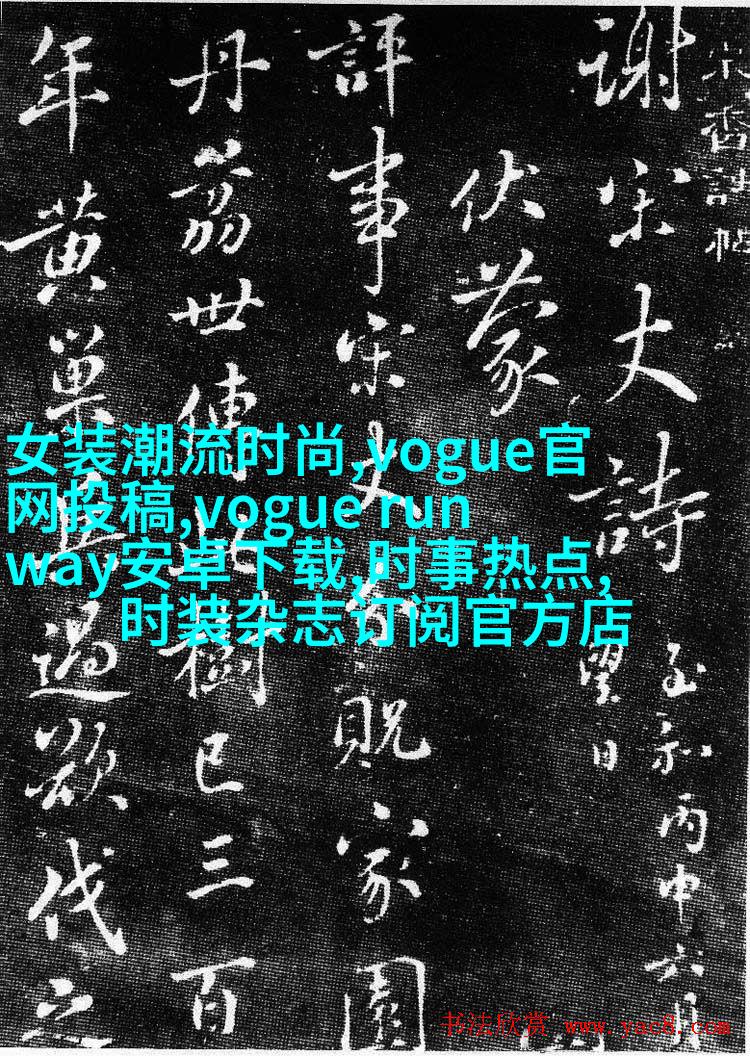 宋香詩帖
謝宋丈詩
至和丙申六月
望日
伏蒙
評事宋丈分貺家園
丹荔世傳此樹已三百
年黄巢兵過欲伐之
女装潮流时尚,vogue官
网投稿,vogue run
way安卓下载,时事热点,
时装杂志订阅官方店
书法欣赏 www.yac8.com